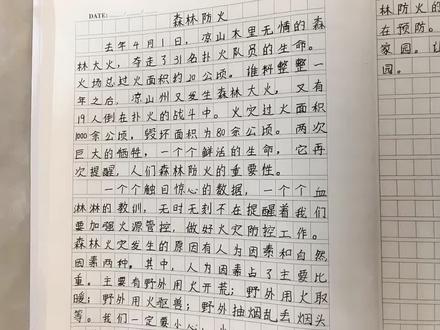 DATE:
森林防火
去年4月1日，凉山木里无情的森
林大火，夺走了31名扑火队员的生命。
火场总过火面积约20公顷。谁料整整一
年之后，凉山州又发生森林大火，又有
19人倒在扑火的战斗中。火灾过火面积
1000余公顷，毁坏面积为80余公顷。两次
巨大的牺牲，一个个鲜活的生命，它再
次提醒，人们森林防火的重要性。
一个个触目惊心的数据，一个个血
淋淋的教训，无时无刻不在提醒着我们
要加强火源管控，做好火灾防控工作。
森林火灾发生的原因有人为因素和自然
因素两种。其中，人为因素占了主要比
重。主要有野外用火开荒；野外用火取
暖；野外用火驱兽；野外抽烟乱丢烟头
等。我们一定要小心，小
林防火的
在预防。
家园。让
园。